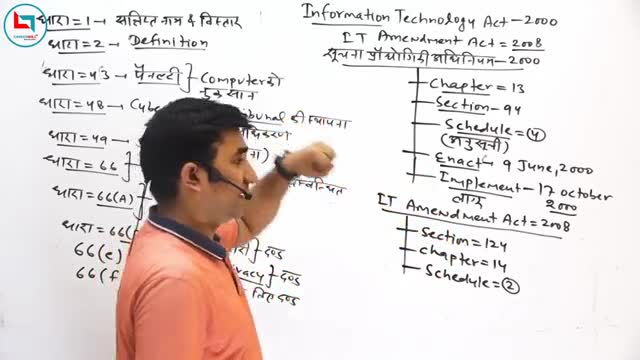 धारा = 1 → संक्षिप्त नाम & विस्तार
धारा = 2 → Definition
धारा = 43 → पैनल्टी Computer को
नुकसान
धारा = 48 → Cybe
की स्थापना
धारा = 49 →
धारा = 66
सम्बन्धित
धारा = 66(A)
धारा = 66(
दण्ड
66(e)
vacy = दण्ड
66(f
लिए दण्ड
Information Technology Act - 2000
IT Amendment Act = 2008
सूचना प्रौद्योगिकी अधिनियम - 2000
Chapter = 13
Section - 94
Schedule = 4
(अनुसूची)
Enact - 9 June, 2000
Implement - 17 October
लागू 2000
IT Amendment Act = 2008
Section = 124
Chapter = 14
Schedule = 2